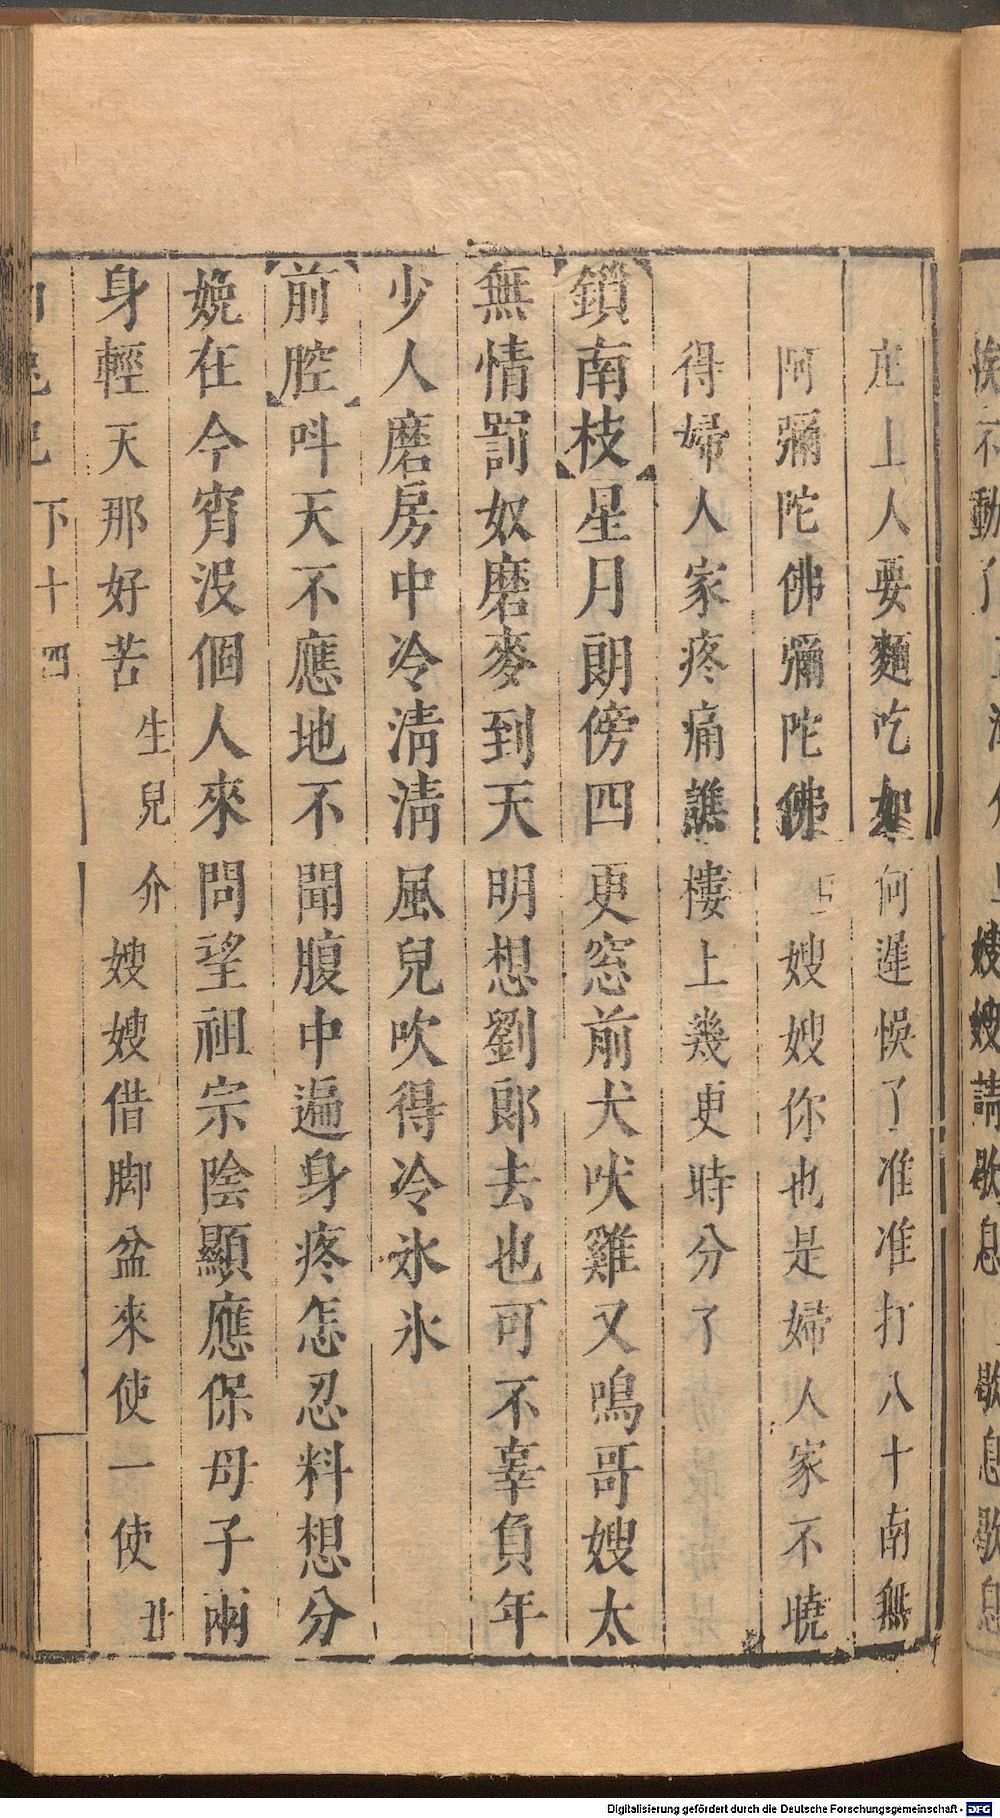 上人要麵吃如何遲悞了准准打八十南無
阿彌陀佛彌陀佛 嫂嫂你也是婦人家不曉
得婦人家疼痛譙樓上幾更時分了
鎖南枝星月朗傍四更窓前犬吠雞又鳴哥嫂太
無情罰奴磨麥到天明想劉郎去也可不辜負年
少人磨房中冷清清風兒吹得冷氷氷
前腔呌天不應地不聞腹中遍身疼怎忍料想分
娩在今宵沒個人來問望祖宗陰顯應保母子兩
身輕天那好苦生兒介嫂嫂借脚盆來使一使丑
下十四
動了
嫂嫂請歇息 歇息歇息
Digitalisierung gefördert durch die Deutsche Forschungsgemeinschaft - DFG